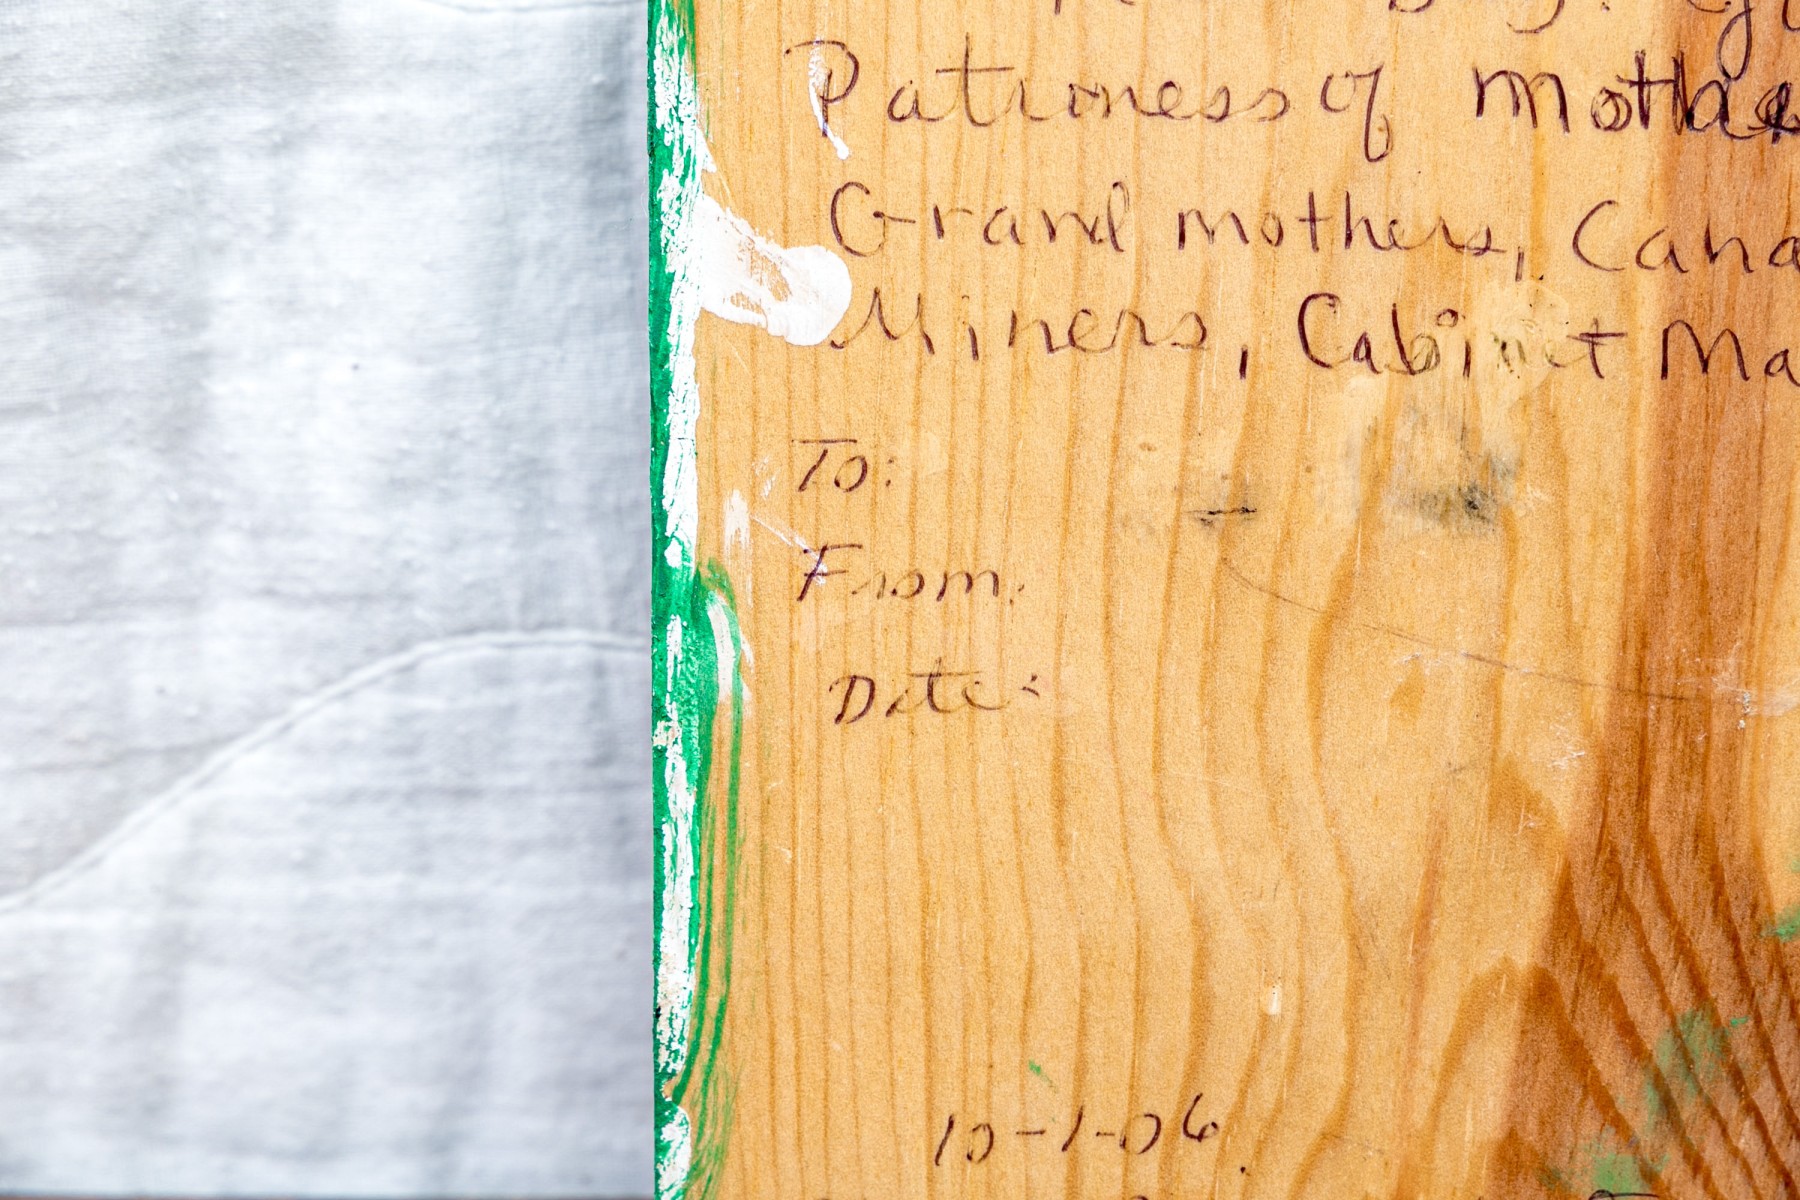 Patroness of Mothe
Grand mothers, Cana
Miners, Cabinet Ma
To:
From:
Date:
10-1-06.